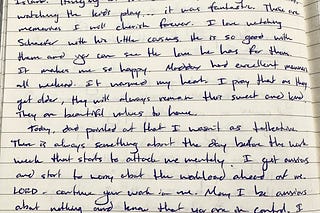 watching the kids play... it was fantastic. These are
memories I will cherish forever. I love watching
with his little cousins. He is so good with
them and you can see the love he has for them.
It makes me so happy. had excellent manners
all weekend. It warmed my heart. I pray that as they
get older, they will always remain this sweet and kind.
They are beautiful values to have.
Today, dad pointed out I wasn't as talkative.
There is always something about the day before the work
week that starts to attack me mentally. I get anxious
and start to worry about the workload ahead of me.
LORD - continue your work in me. May I be anxious
about nothing and know that you are in control. I